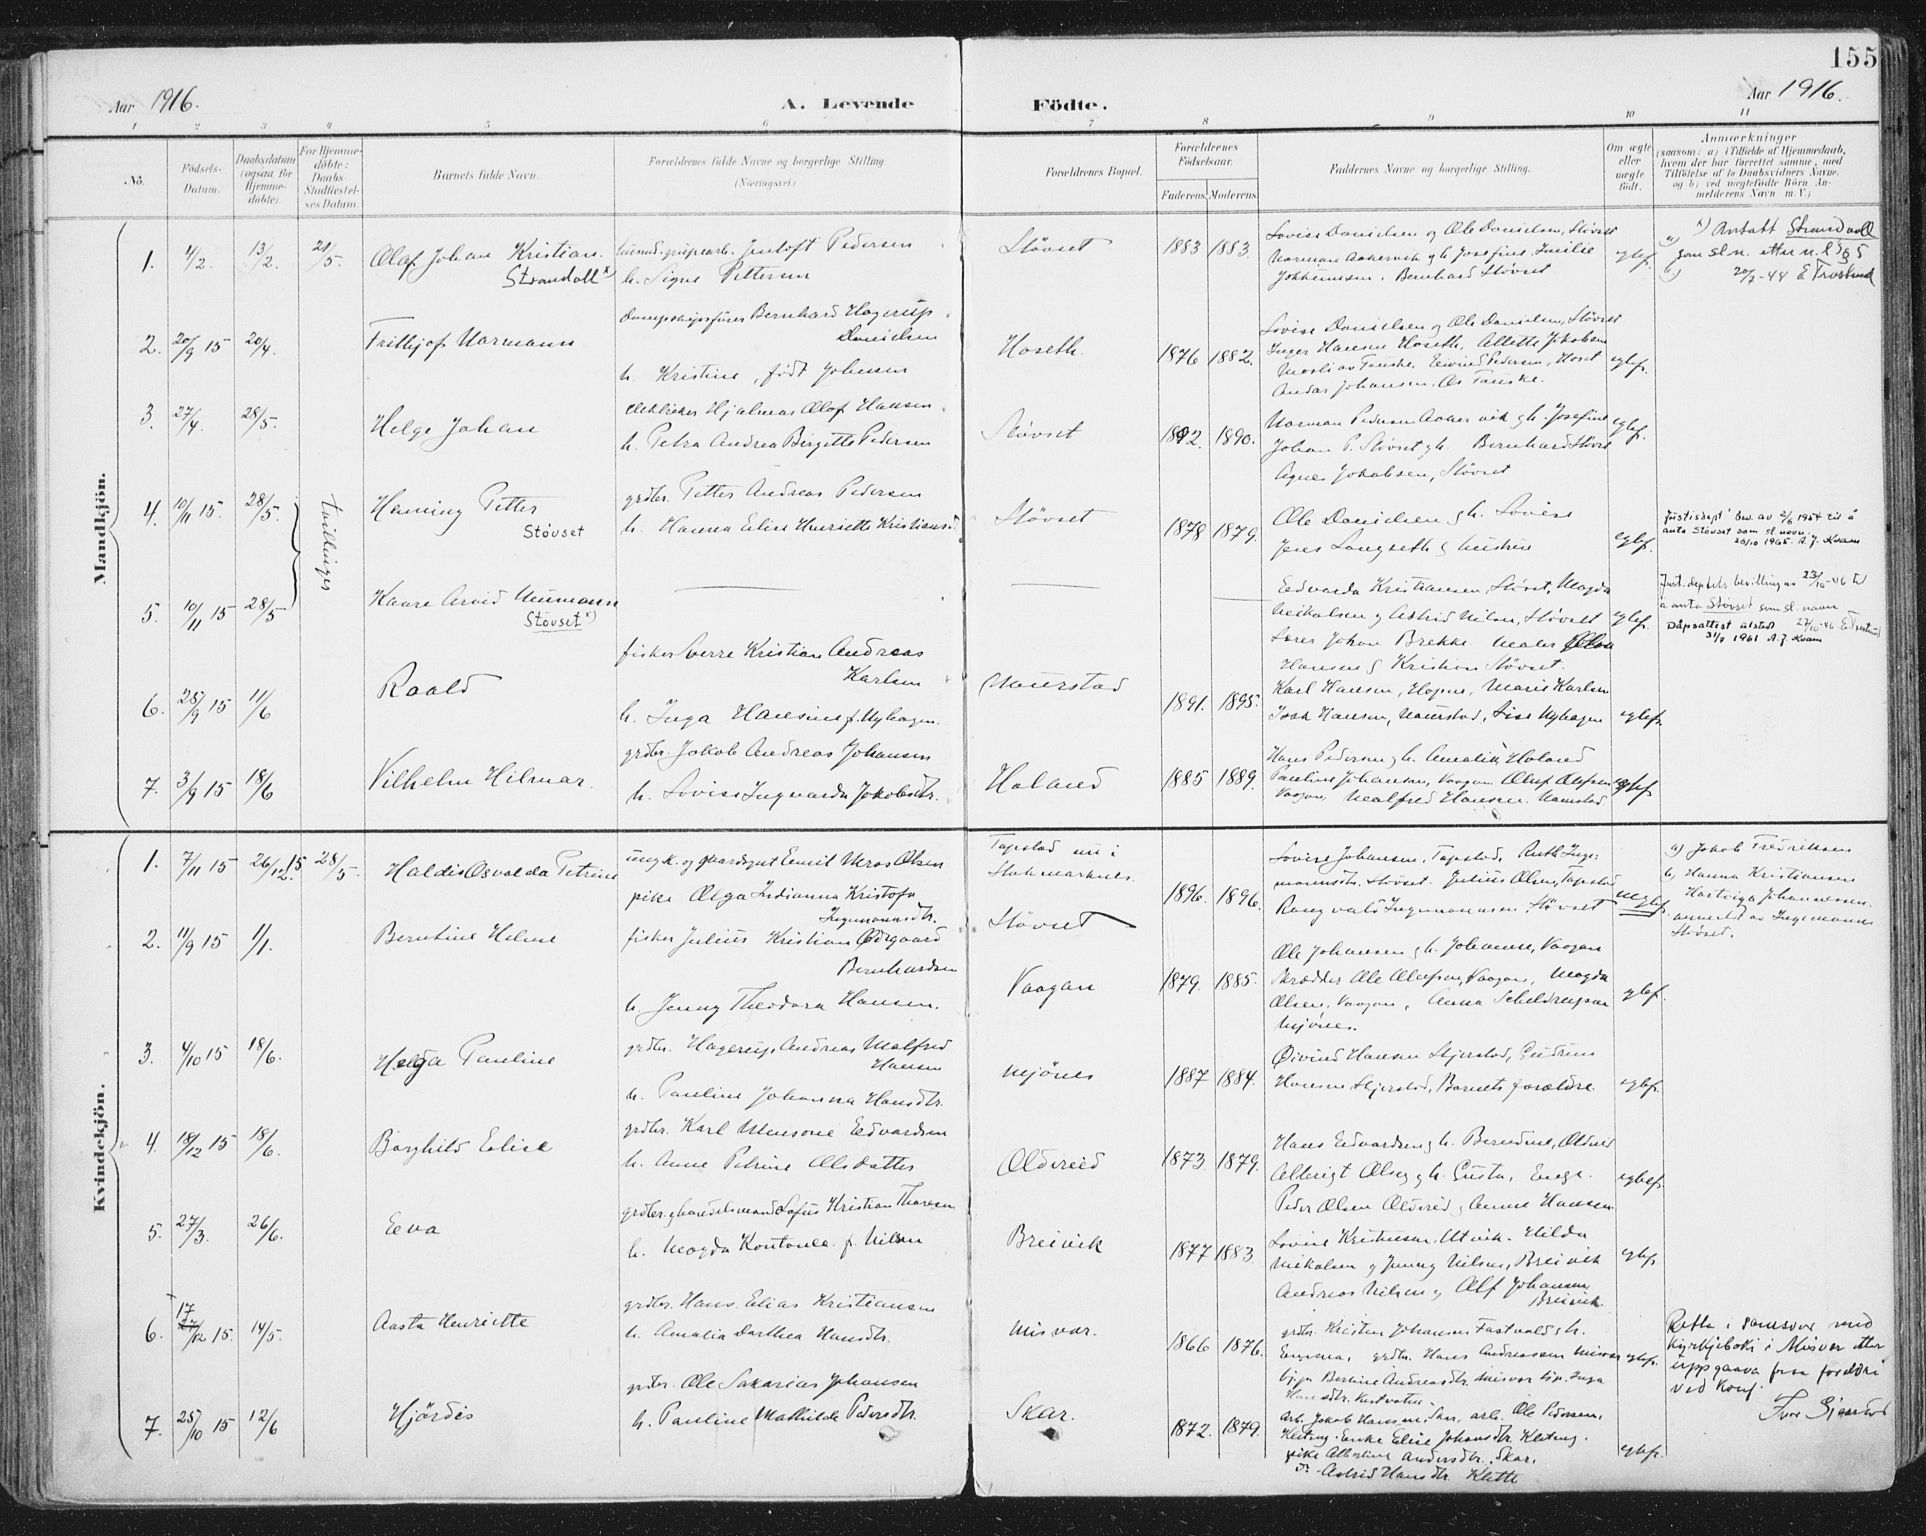 155
Aar 1916.
A. Levende Födte.
Aar 1916.
1 2 3 4 5 6 7 8 9 10 11
No.
Födsels-Datum.
Daabsdatum (ogsaa for Hjemme-döbte).
For Hjemme-döbte: Daabs-Stadfæstel-ses Datum.
Barnets fulde Navn.
Forældrenes fulde Navne og borgerlige Stilling. (Næringsvei.)
Forældrenes Bopæl.
Forældrenes Födselsaar.
Faderens. Moderens.
Faddernes Navne og borgerlige Stilling.
Om ægte eller uægte födt.
Anmærkninger
(saasom: a) i Tilfælde af Hjemmedaab, hvem der har forrettet samme, med Tilföielse af to Daabsvidners Navne. og b) ved uægtefödte Börn An-melderens Navn m. V.)
Mandkjön.
1. 1/2. 13/2. 21/5. Olaf Johan Kristian.
Strandvoll x)
Pedersen
h. Signe Pettersen
Stövset
1883 1883.
Lovise Danielsen og Ole Danielsen, Stövset
Bernhard Stövset
egtef.
x) Antatt Strandvoll
som sl.n. etter n.l. § 5
20/7-44 E Trostrud
2. 20/9 15 20/4. Frithjof Normann
dampskipsfører Bernhard Hagerup
Danielsen
h. Kristine, født Johnsen
Hoseth.
1876 1882.
Lovise Danielsen og Ole Danielsen, Stövset
Inger Hansen Hoseth. Alette Jakobsen
Eivind Pedersen, Hoset
Johansen. Os Fauske.
egtef.
3. 27/4. 28/5. Helge Johan
Hjalmar Olaf Hansen.
h. Petra Andrea Birgitte Pedersen
Stövset
1892. 1890.
Norman Pedersen Aaker vik g h. Josefine
Johan P. Stövset g h. Bernhard Stövset
Agnes Jakobsen, Stövset
egtef.
4. 10/11 15. 28/5. Henning Petter
Stövset
tvillinger
grdbr. Petter Andreas Pedersen
h. Hanna Elise Henriette Kristiansd.
Stövset
1878 1879.
Ole Danielsen g h. Lovise
Jens Langseth g hustru
egtef.
Justisdept' bev. av 2/6 1954 til å
anta Stövset som sl.navn.
20/10 1965. A.J. Kvam
5. 10/11 15 28/5 Kaare Arvid Neumann
Stövset x)
Edvarda Kristiansen, Stövset, Magda
Nikolsen og Astrid Nilsen, Stövset
Lærer Johan Brekke. Olsa
Hansen g Kristian Stövset.
egtef.
Just.deptets bevilling av 23/10-46 til
å anta Stövset som sl. navn
27/10-46. E Trostrud
Dåpsattest utstedt
31/7 1961 A.J. Kvam
6. 28/9 15 11/6 Roald
fisker Sverre Kristian Andreas
Karlsen
h. Inga Hansine f. Nyhagen.
Naurstad
1891. 1895.
Karl Hansen, Hopen, Marie Karlsen
Isak Hansen, Naurstad, Lise Nyhagen
egtef.
7. 3/9 15 18/6 Vilhelm Hilmar.
grdbr. Jakob Andreas Johansen
h. Lovise Ingvarda Jakobsdtr.
Haland
1885 1889.
Hans Pedersen g h. Amalie, Haland
Pauline Johansen, Vaagan. Oluf Olufsen
Vaagan, Nalfred Hansen. Naurstad
egtef.
Kvindekjön.
1. 7/11 15 26/12.15 28/5. Haldis Osvalda Petrine
ungk. og gaardsgut Emil Olsen
pike Olga Indianna Kristofa
Ingemannsdtr.
Tapstad nu i
Stokmarknes.
Stövset
1896. 1896.
Lovise Johansen, Tapstad, Ruth Inge-
mannsdtr. Stövset. Julius Olsen, Tapstad
Rangvald Ingemannsen, Stövset
uegtef.
a) Jakob Fredriksen
b) Hanna Kristiansen
Hartviga Johannessen.
anmeldt av Ingemannsen
Stövset.
2. 11/9 15 1/1. Berntine Helene
fisker Julius Kristian Ødegaard
Bernhardsen
h. Jenny Theodora Hansen.
Vaagan
1879. 1885.
Ole Johansen g h. Johanna, Vaagan
Skrædder Ole Olufsen, Vaagan, Magda
Olsen, Vaagan, Anna Scheldrupsen
Mjönes.
egtef.
3. 4/10 15 18/6. Helga Pauline
grdbr. Hagerup Andreas Malfred
Hansen
h. Pauline Johanna Hansdtr.
Mjönes
1887 1884.
Øivind Hansen Skjerstad, Gudrun
Hansen Skjerstad, Barnets forældre.
egtef.
4. 18/12 15 18/6. Borghild Elise
grdbr. Karl Monsone Edvardsen
h. Anne Petrine Olsdatter
Oldereid
1873. 1879.
Hans Edvardsen g h. Berntine, Oldereid
Alderigt Olsen g h. Gusta, Enge.
Peder Olsen Oldereid g Anne Hansen
egtef.
5. 27/3. 26/6. Eva
grdbr. g handelsmand Lofus Kristian Thoresen
h. Magda Konstance f. Nilsen
Breivik
1877 1883.
Lovise Kristensen, Utvik. Hilda
Nikolsen g Jenny Nilsen, Breivik
Andreas Nilsen g Alf Johansen,
Breivik.
egtef.
6. 17 27/12 15. 14/5. Aasta Henriette
grdbr. Hans Elias Kristiansen
h. Amalia Dorthea Hansdtr.
Misvær.
1866 1876.
grdbr. Kristen Johansen Fastvold g h.
Emma, grdbr. Hans Andreassen Misvær
Bertine Andreasdtr. Misvær Inga
Hansdtr.
egtef.
Retta i samsvar med
kyrkjeboki i Misvær etter
uppgaava fraa foreldri
ved konf.
7. 25/10 15 12/6 Hjördis
grdbr. Ole Sakarias Johansen
h. Pauline Mathilde Pedersdtr.
Skar.
1872. 1879.
arb. Jakob Hansen, Skar, arb. Ole Pedersen,
Kletting. Enke Elise Johansdtr. Kletting.
pike Albertine Andersdtr. Skar.
Do. Astrid Hansdtr. Klette
egtef.